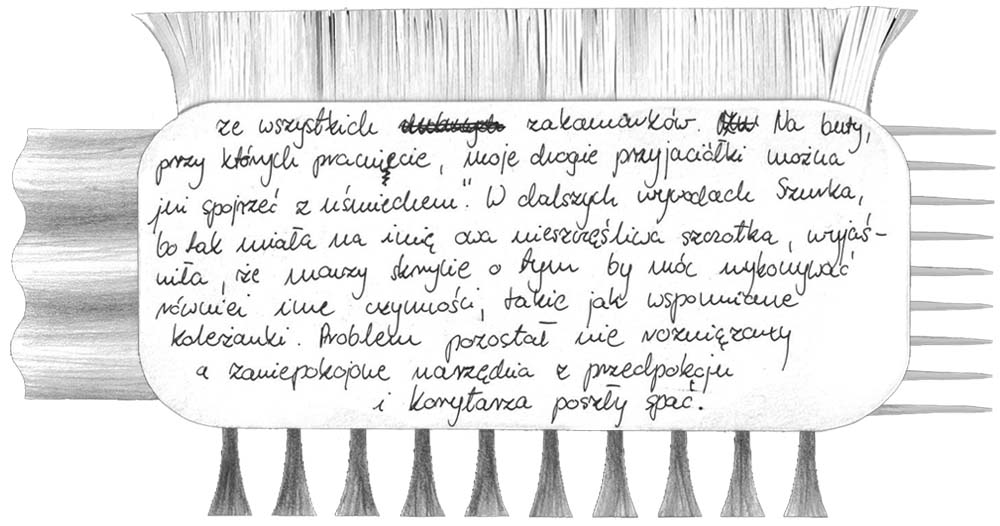 ze wszystkich zakamarków. Na buty,
przy których pracujecie, moje drogie przyjaciółki można
już spojrzeć z uśmiechem". W dalszych wywodach Szurka,
bo tak miała na imię owa nieszczęśliwa szczotka, wyjaś-
niła, że marzy skrycie o tym by móc wykonywać
również inne czynności, takie jak wspomniane
koleżanki. Problem pozostał nie rozwiązany
a zaniepokojone narzędzia z przedpokoju
i korytarza poszły spać.